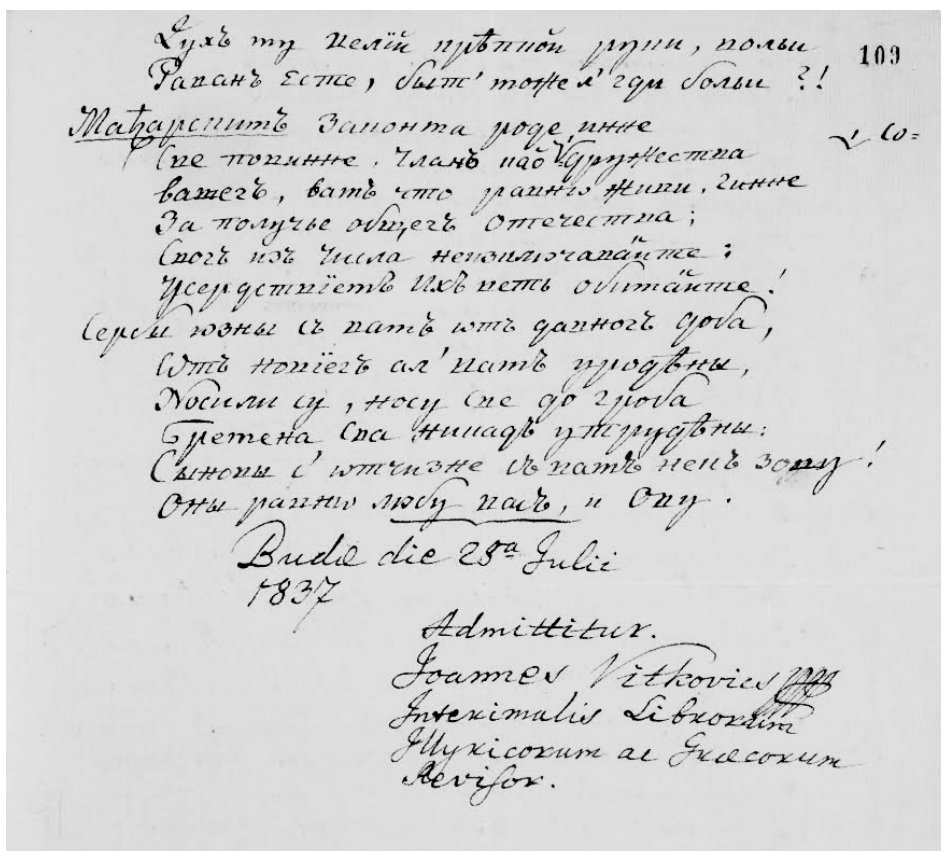 Духъ му велій крѣпкой руки, кольи
109
Раванъ Есте, быт' може л' гди больи ?!
Маћарскимъ Законма роде, инне
Све повинне. Членъ као Дружества
√ Со=
вашегъ, вамъ что равнѡ живи, чинне
За получье общегъ Отечества;
Свогъ изъ Числа неизключавайте:
Усердствіемъ Ихъ веть обитайте!
Серби юзны съ вамъ ѡтъ давногъ доба,
Ѡтъ новіегъ ал' вамъ уродѣны,
Носили су, носу све до гроба
Бремена сва никадъ утрудѣны:
Сынови с' ѡтчизне съ вамъ некъ зову!
Оны равнѡ любу васъ, и Ову.
Budæ die 28ª Julii
1837
Admittitur.
Joannes Vitkovics
Interimalis Librorum
Illyricorum ac Græcorum
Revisor.